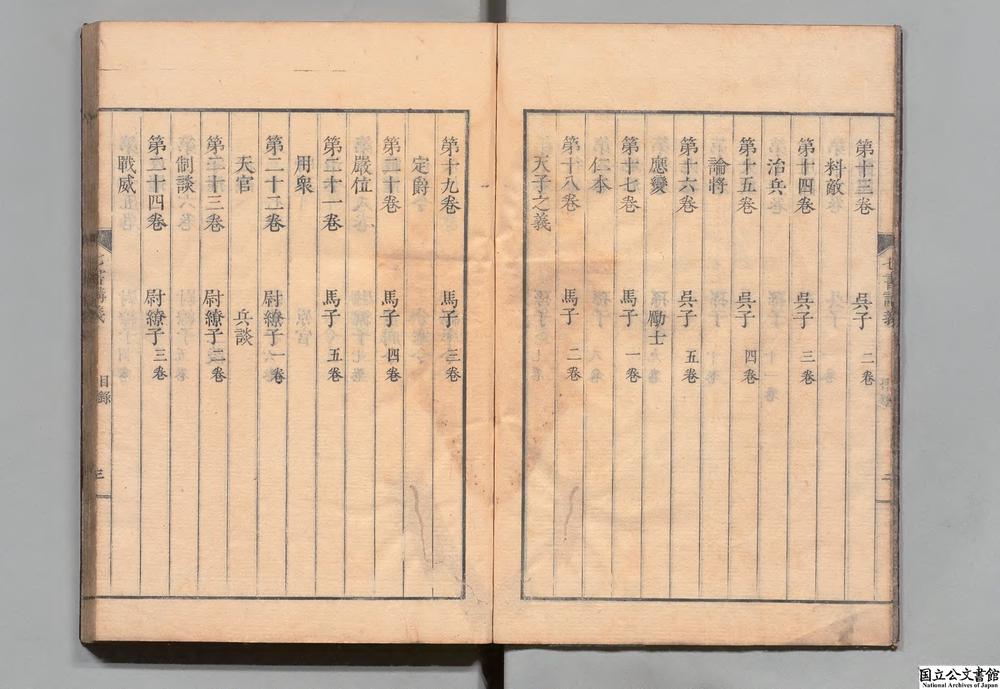 第十三卷　吳子　二卷
料敵
第十四卷　吳子　三卷
治兵
第十五卷　吳子　四卷
論將
第十六卷　吳子　五卷
應變　勵士
第十七卷　馬子　一卷
仁本
第十八卷　馬子　二卷
天子之義
第十九卷　馬子　三卷
定爵
第二十卷　馬子　四卷
嚴位
第二十一卷　馬子　五卷
用衆
第二十二卷　尉繚子　一卷
天官　兵談
第二十三卷　尉繚子　二卷
制談
第二十四卷　尉繚子　三卷
戰威
七書講義　目錄　三
国立公文書館
National Archives of Japan